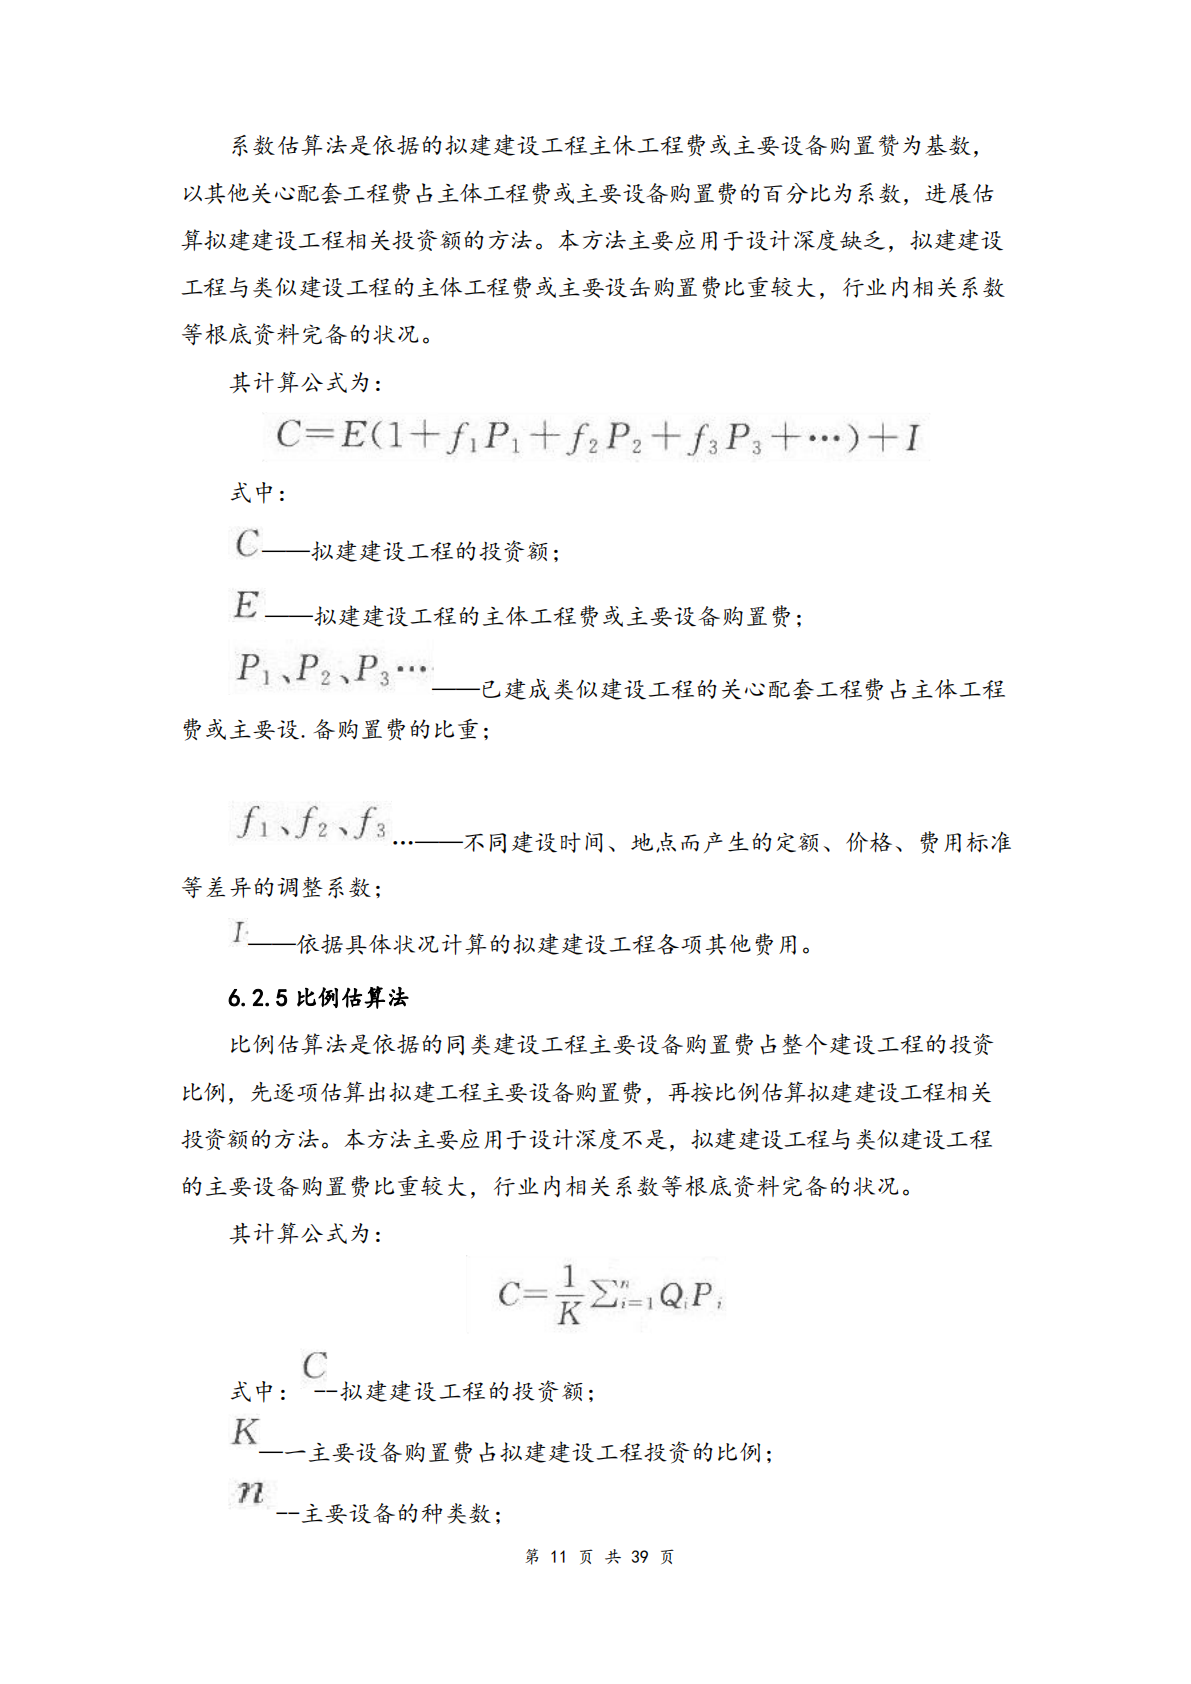 系数估算法是依据的拟建建设工程主休工程费或主要设备购置赞为基数，
以其他关心配套工程费占主体工程费或主要设备购置费的百分比为系数，进展估
算拟建建设工程相关投资额的方法。本方法主要应用于设计深度缺乏，拟建建设
工程与类似建设工程的主体工程费或主要设缶购置费比重较大，行业内相关系数
等根底资料完备的状况。
其计算公式为：
C=E(1+f₁P₁+f₂P₂+f₃P₃+…)+I
式中：
C——拟建建设工程的投资额；
E——拟建建设工程的主体工程费或主要设备购置费；
P₁、P₂、P₃…——已建成类似建设工程的关心配套工程费占主体工程
费或主要设.备购置费的比重；
f₁、f₂、f₃…——不同建设时间、地点而产生的定额、价格、费用标准
等差异的调整系数；
I——依据具体状况计算的拟建建设工程各项其他费用。
6.2.5 比例估算法
比例估算法是依据的同类建设工程主要设备购置费占整个建设工程的投资
比例，先逐项估算出拟建工程主要设备购置费，再按比例估算拟建建设工程相关
投资额的方法。本方法主要应用于设计深度不是，拟建建设工程与类似建设工程
的主要设备购置费比重较大，行业内相关系数等根底资料完备的状况。
其计算公式为：
C=1/K∑ⁿᵢ₌₁QᵢPᵢ
式中：C--拟建建设工程的投资额；
K—一主要设备购置费占拟建建设工程投资的比例；
n--主要设备的种类数；
第 11 页 共 39 页